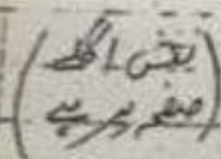 (بقیہ اگلے
صفحہ پر ہے)